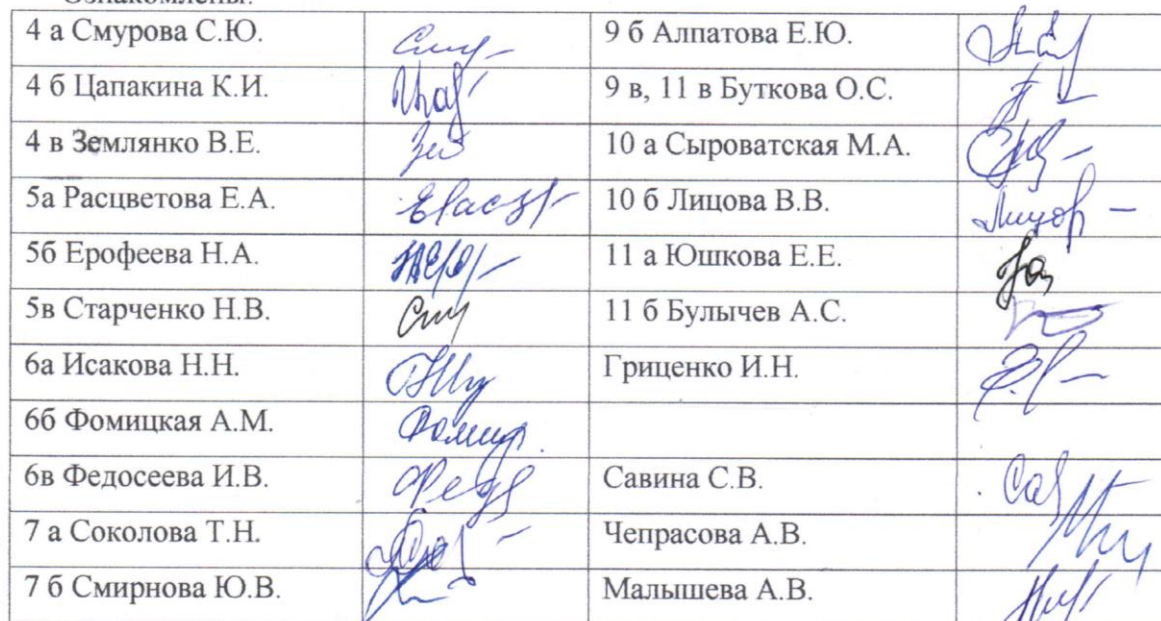 Ознакомлены:
4 а Смурова С.Ю.
9 б Алпатова Е.Ю.
4 б Цапакина К.И.
9 в, 11 в Буткова О.С.
4 в Землянко В.Е.
10 а Сыроватская М.А.
5а Расцветова Е.А.
10 б Лицова В.В.
5б Ерофеева Н.А.
11 а Юшкова Е.Е.
5в Старченко Н.В.
11 б Булычев А.С.
6а Исакова Н.Н.
Гриценко И.Н.
6б Фомицкая А.М.
6в Федосеева И.В.
Савина С.В.
7 а Соколова Т.Н.
Чепрасова А.В.
7 б Смирнова Ю.В.
Малышева А.В.